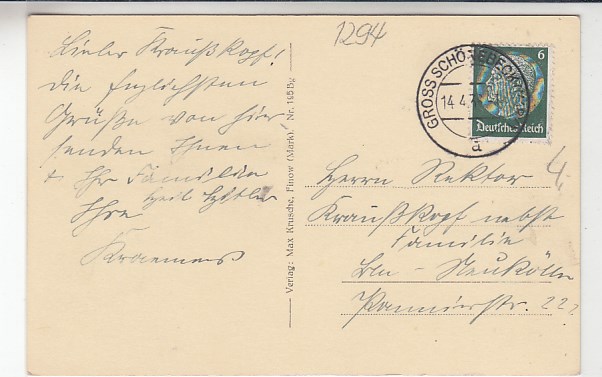 1294
Lieber Kraußkopf!
Die herzlichsten
Grüße von hier
senden Ihnen
+ Ihr Familie
Heil Hitler
Ihre
Kraemers
Verlag: Max Krusche, Finow (Mark). Nr. 165 Bg
GROSS SCHÖNEBECK
14.4.
a
6
Deutsches Reich
Herrn Rektor
Kraußkopf nebst
Familie
Bln - Neukölln
Pannierstr. 22